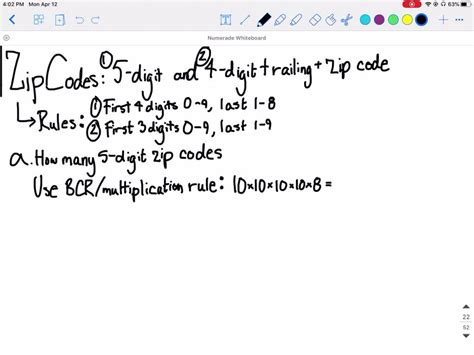 4:02 PM Mon Apr 12
63%
Numerade Whiteboard
Zip Codes: ① 5-digit and ② 4-digit trailing + zip code
Rules: ① First 4 digits 0-9, last 1-8
② First 3 digits 0-9, last 1-9
a. How many 5-digit zip codes
Use BCR/multiplication rule: 10×10×10×10×8 =
22
52